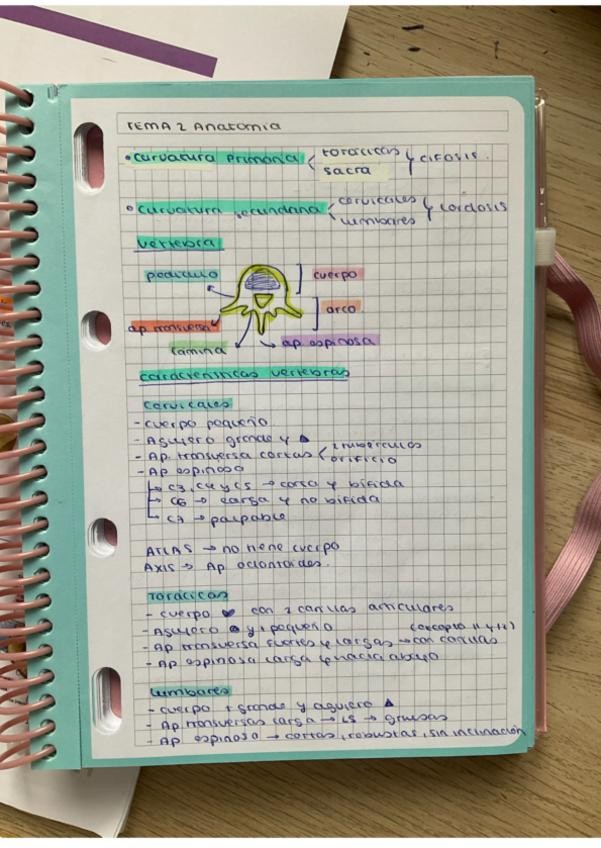 TEMA 2 Anatomia
• curvatura primaria < toracicas
sacra } cifosis.
• curvatura secundaria < cervicales
lumbares } lordosis
vertebra
pediculo
cuerpo
arco
ap transversa
lamina
ap espinosa
características vertebras
cervicales
- cuerpo pequeño
- Agujero grande y ▲
- Ap. transversa cortas < 2 tuberculos
orificio
- Ap espinosa
↳ C3, C4 y C5 → corta y bifida
↳ C6 → larga y no bifida
↳ C7 → palpable
ATLAS → no tiene cuerpo
AXIS → Ap odontoides.
Toracicas
- cuerpo ♥ con 2 carillas articulares
- Agujero ● y pequeño (excepto 11 y 12)
- Ap transversa fuertes y largas → con carillas
- Ap espinosa larga y hacia abajo
Lumbares
- cuerpo + grande y agujero ▲
- Ap transversas larga → L5 → gruesas
- Ap espinosa → cortas, robustas, sin inclinación